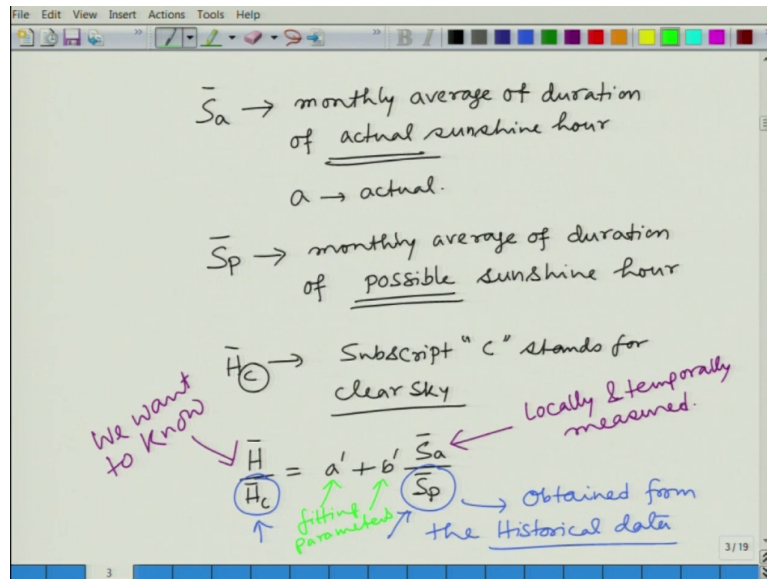 File Edit View Insert Actions Tools Help
B I
S̄a → monthly average of duration
of actual sunshine hour
a → actual.
S̄p → monthly average of duration
of possible sunshine hour
H̄c → Subscript "c" stands for
clear sky
We want
to know
Locally & temporally
measured.
H̄/H̄c = a' + b' S̄a/S̄p
fitting
parameters
→ Obtained from
the Historical data
3/19
3